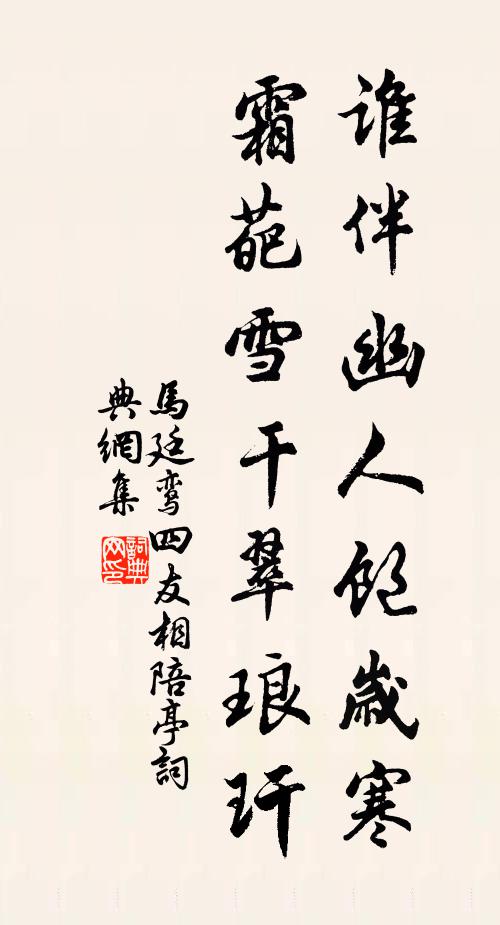 谁伴幽人饱歲寒
霜葩雪干翠琅玕
馬廷鸾四友相陪亭詞
典網集
詞典
网印